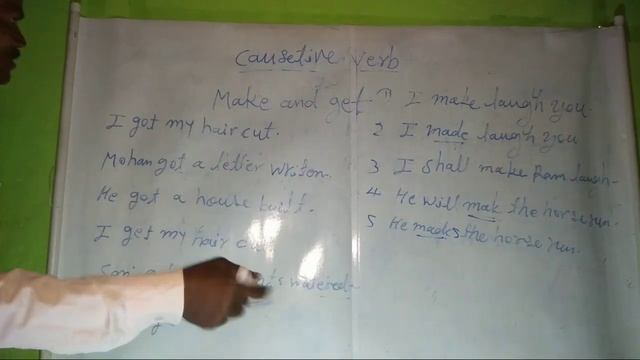 Causetive verb
Make and get
I got my hair cut.
Mohan got a letter written.
He got a house built.
I get my hair
watered
(1) I make laugh you.
2 I made laugh you
3 I shall make Ram laugh
4 He will mak the horse run.
5 He maeks the horse run.